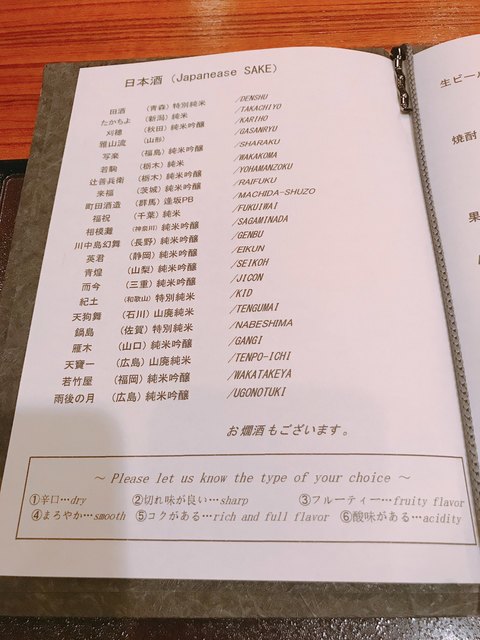 日本酒 (Japanease SAKE)
田酒 (青森) 特別純米 /DENSHU
たかちよ (新潟) 純米 /TAKACHIYO
刈穂 (秋田) 純米吟醸 /KARIHO
雅山流 (山形) /GASANRYU
写楽 (福島) 純米吟醸 /SHARAKU
若駒 (栃木) 純米 /WAKAKOMA
辻善兵衛 (栃木) 純米吟醸 /YOHAMANZOKU
来福 (茨城) 純米吟醸 /RAIFUKU
町田酒造 (群馬) 逢坂PB /MACHIDA-SHUZO
福祝 (千葉) 純米 /FUKUIWAI
相模灘 (神奈川) 純米吟醸 /SAGAMINADA
川中島幻舞 (長野) 純米吟醸 /GENBU
英君 (静岡) 純米吟醸 /EIKUN
青煌 (山梨) 純米吟醸 /SEIKOH
而今 (三重) 純米吟醸 /JICON
紀土 (和歌山) 特別純米 /KID
天狗舞 (石川) 山廃純米 /TENGUMAI
鍋島 (佐賀) 特別純米 /NABESHIMA
雁木 (山口) 純米吟醸 /GANGI
天寶一 (広島) 山廃純米 /TENPO-ICHI
若竹屋 (福岡) 純米吟醸 /WAKATAKEYA
雨後の月 (広島) 純米吟醸 /UGONOTUKI
お燗酒もございます。
～ Please let us know the type of your choice ～
①辛口…dry ②切れ味が良い…sharp ③フルーティー…fruity flavor
④まろやか…smooth ⑤コクがある…rich and full flavor ⑥酸味がある…acidity
生ビール
焼酎
果